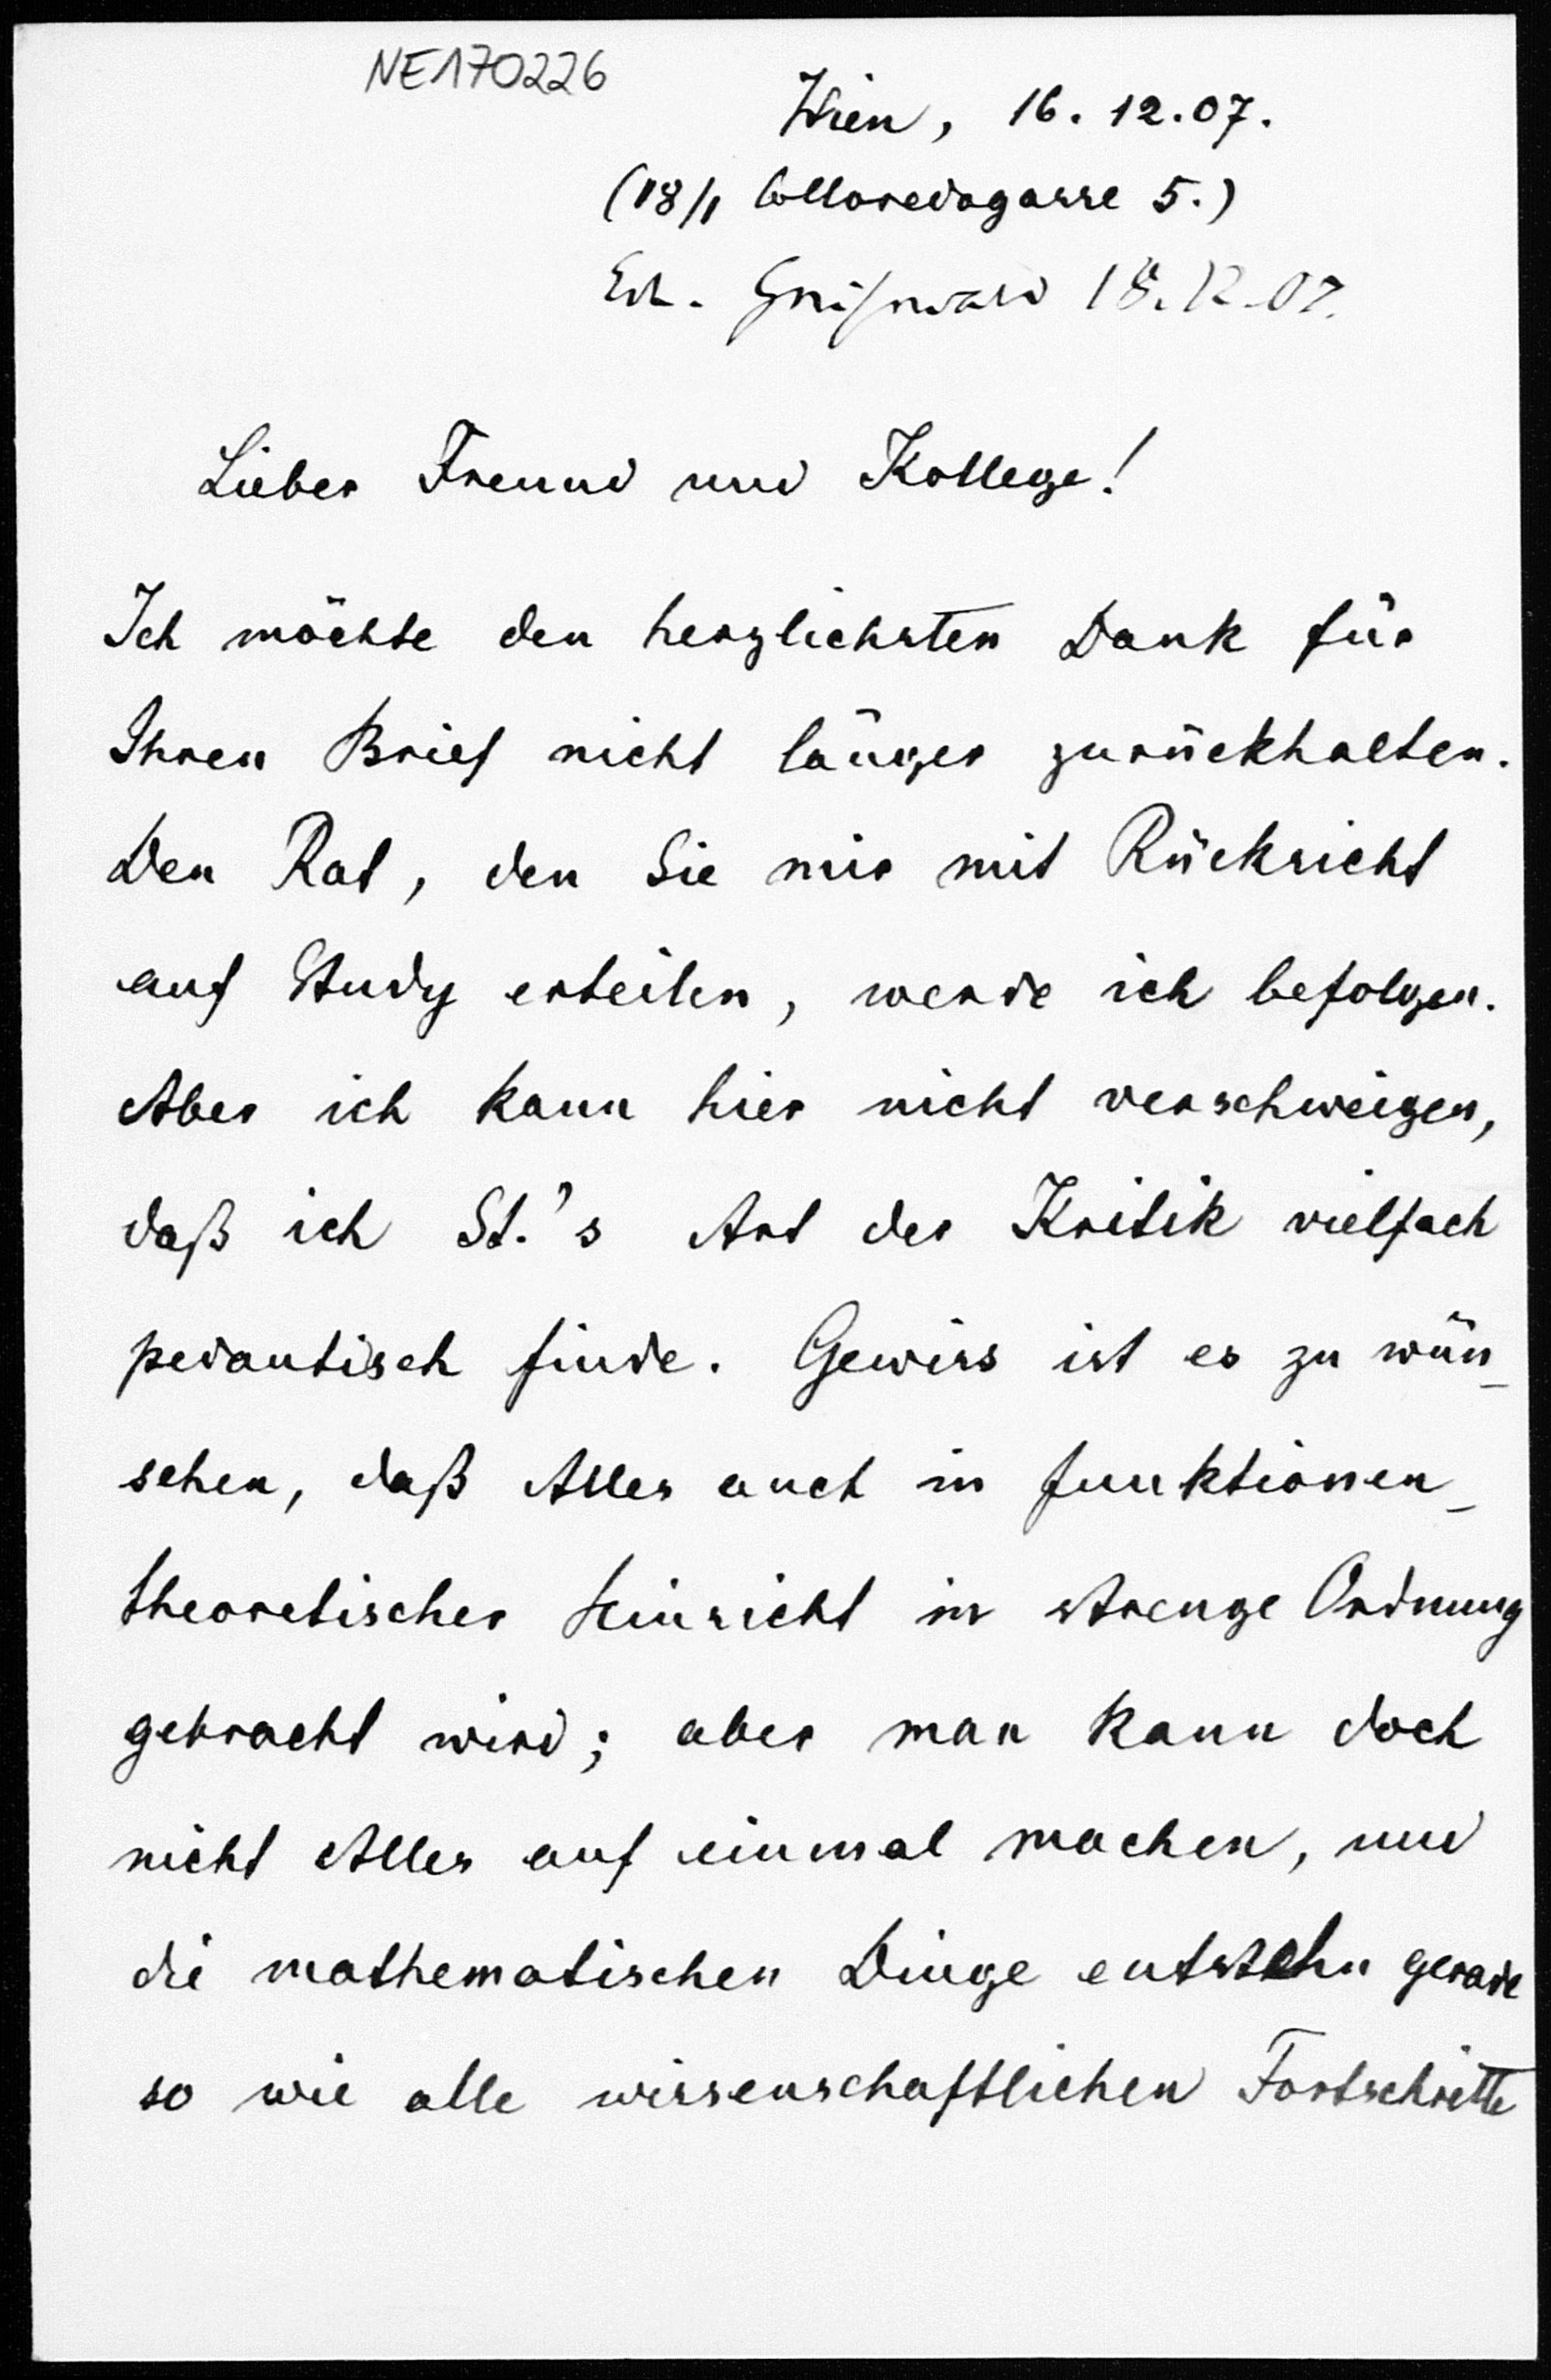 NE170226
Wien, 16. 12. 07.
(18/1 Colloredogasse 5.)
Erh. Greifswald 18. 12. 07.
Lieber Freund und Kollege!
Ich möchte den herzlichsten Dank für
Ihren Brief nicht länger zurückhalten.
Den Rat, den Sie mir mit Rücksicht
auf Study erteilen, werde ich befolgen.
Aber ich kann hier nicht verschweigen,
daß ich St.'s Art der Kritik vielfach
pedantisch finde. Gewiss ist es zu wün-
schen, daß Alles auch in funktionen-
theoretischer Hinsicht in strenge Ordnung
gebracht wird; aber man kann doch
nicht Alles auf einmal machen, und
die mathematischen Dinge entstehn gerade
so wie alle wissenschaftlichen Fortschritte